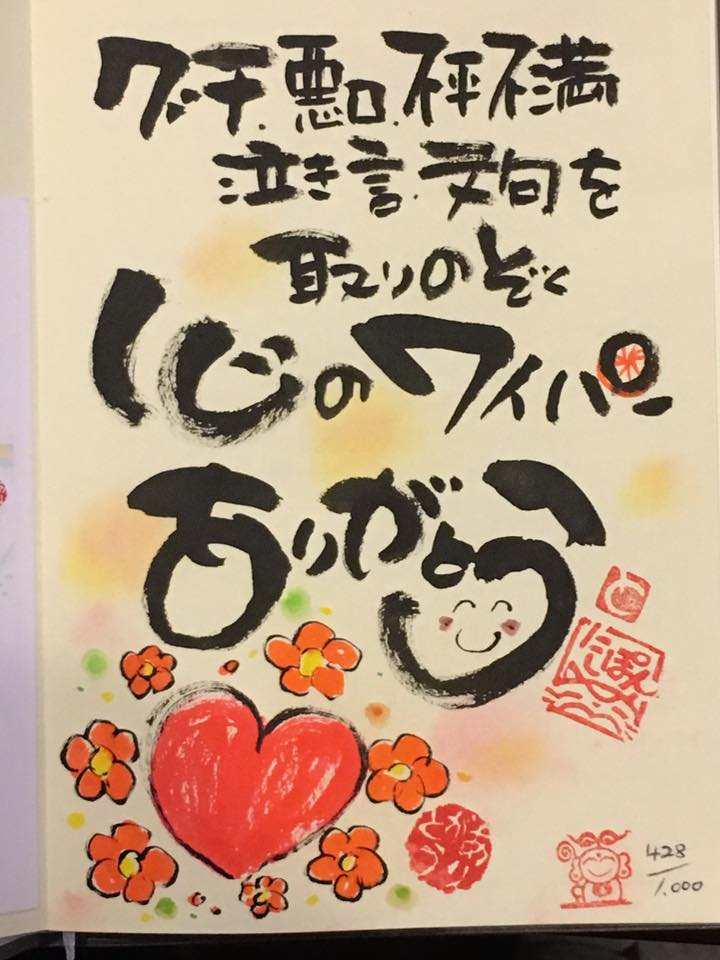 グチ.悪口.不平不満
泣き言.文句を
取りのぞく
心のワイパー
ありがとう
428/1.000